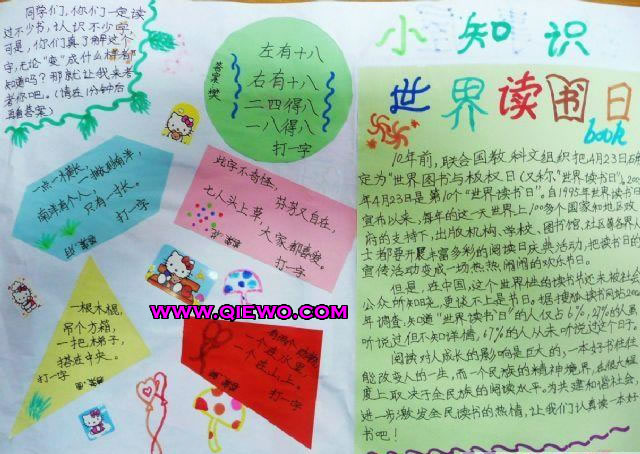 同学们,你们一定读
过不少书,认识不少字
可是,你们真了解这个
字,无论"变"成什么样都
知道吗?那就让我来考
考你吧。(请在1分钟后
再看答案)
左有十八
右有十八
二四得八
一八得八
打一字
答案:樊
一点一横长,
二撇到南洋,
南洋有个人,
只有一寸长。
打一字
答案:府
此字不奇怪,
七人头上草,
芬芳又自在,
大家都喜爱。
打一字
答案:花
一根木棍,
吊个方箱,
一把梯子,
搭在中央。
打一字
有两个动物,
一个在水里,
一个在山上。
打一字
WWW.QIEWO.COM
小知识
世界读书日
book
10年前,联合国教科文组织把4月23日确
定为"世界图书与版权日(又称"世界读书日"。200
年4月23日是第10个"世界读书日"。自1995年世界读书日
宣布以来,每年的这一天世界上100多个国家和地区政
府的支持下,出版机构、学校、图书馆、社区等各界人
士都要开展丰富多彩的阅读日庆典活动,把读书日的
宣传活动变成一场热热闹闹的欢乐节日。
但是,在中国,这个世界性的读书节还未被社会
公众所知晓,更谈不上是书日。据搜狐读书网站200
年调查,知道"世界读书日"的人仅占6%,27%的人虽
听说过但不知详情,67%的人从未听说过这个日子。
阅读对人成长的影响是巨大的,一本好书往往
能改变人的一生,而一个民族的精神境界,在很大程
度上取决于全民族的阅读水平。为共建和谐社会,
进一步激发全民读书的热情,让我们认真读一本好
书吧!